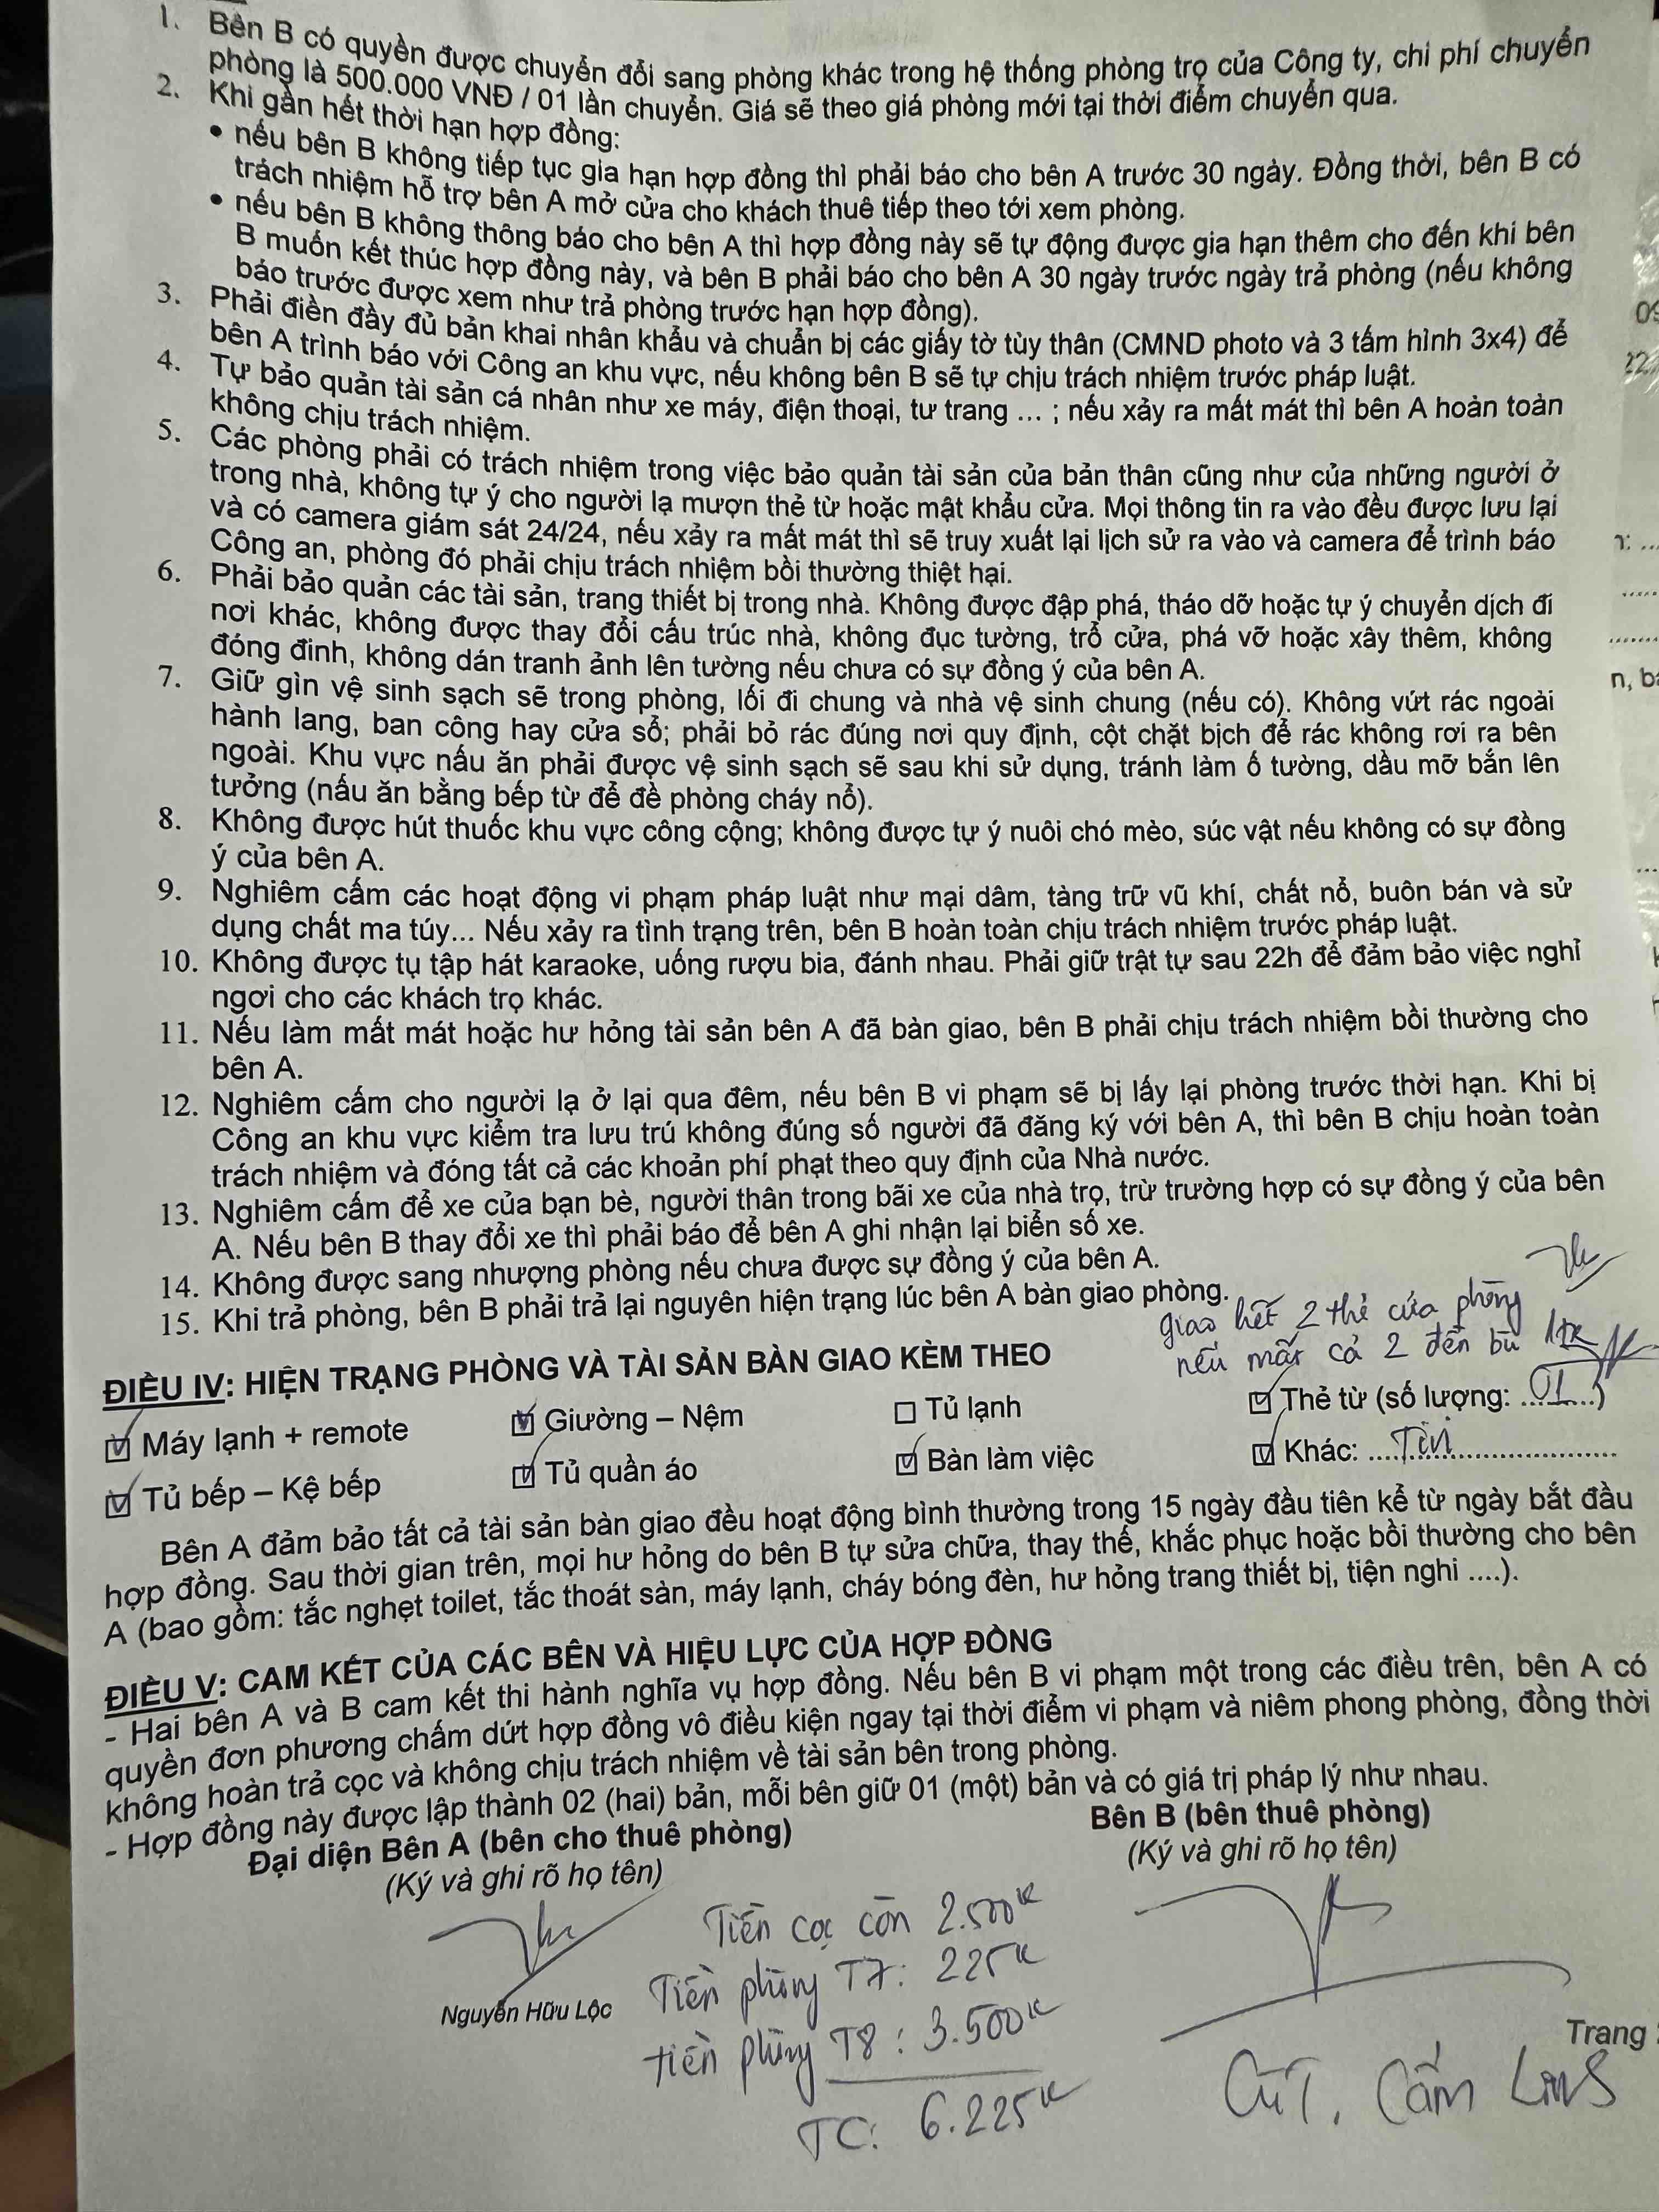 1. Bên B có quyền được chuyển đổi sang phòng khác trong hệ thống phòng trọ của Công ty, chi phí chuyển
phòng là 500.000 VNĐ / 01 lần chuyển. Giá sẽ theo giá phòng mới tại thời điểm chuyển qua.
2. Khi gần hết thời hạn hợp đồng:
• nếu bên B không tiếp tục gia hạn hợp đồng thì phải báo cho bên A trước 30 ngày. Đồng thời, bên B có
trách nhiệm hỗ trợ bên A mở cửa cho khách thuê tiếp theo tới xem phòng.
• nếu bên B không thông báo cho bên A thì hợp đồng này sẽ tự động được gia hạn thêm cho đến khi bên
B muốn kết thúc hợp đồng này, và bên B phải báo cho bên A 30 ngày trước ngày trả phòng (nếu không
báo trước được xem như trả phòng trước hạn hợp đồng).
3. Phải điền đầy đủ bản khai nhân khẩu và chuẩn bị các giấy tờ tùy thân (CMND photo và 3 tấm hình 3x4) để
bên A trình báo với Công an khu vực, nếu không bên B sẽ tự chịu trách nhiệm trước pháp luật.
4. Tự bảo quản tài sản cá nhân như xe máy, điện thoại, tư trang ... ; nếu xảy ra mất mát thì bên A hoàn toàn
không chịu trách nhiệm.
5. Các phòng phải có trách nhiệm trong việc bảo quản tài sản của bản thân cũng như của những người ở
trong nhà, không tự ý cho người lạ mượn thẻ từ hoặc mật khẩu cửa. Mọi thông tin ra vào đều được lưu lại
và có camera giám sát 24/24, nếu xảy ra mất mát thì sẽ truy xuất lại lịch sử ra vào và camera để trình báo
Công an, phòng đó phải chịu trách nhiệm bồi thường thiệt hại.
6. Phải bảo quản các tài sản, trang thiết bị trong nhà. Không được đập phá, tháo dỡ hoặc tự ý chuyển dịch đi
nơi khác, không được thay đổi cấu trúc nhà, không đục tường, trổ cửa, phá vỡ hoặc xây thêm, không
đóng đinh, không dán tranh ảnh lên tường nếu chưa có sự đồng ý của bên A.
7. Giữ gìn vệ sinh sạch sẽ trong phòng, lối đi chung và nhà vệ sinh chung (nếu có). Không vứt rác ngoài
hành lang, ban công hay cửa sổ; phải bỏ rác đúng nơi quy định, cột chặt bịch để rác không rơi ra bên
ngoài. Khu vực nấu ăn phải được vệ sinh sạch sẽ sau khi sử dụng, tránh làm ố tường, dầu mỡ bắn lên
tưởng (nấu ăn bằng bếp từ để đề phòng cháy nổ).
8. Không được hút thuốc khu vực công cộng; không được tự ý nuôi chó mèo, súc vật nếu không có sự đồng
ý của bên A.
9. Nghiêm cấm các hoạt động vi phạm pháp luật như mại dâm, tàng trữ vũ khí, chất nổ, buôn bán và sử
dụng chất ma túy... Nếu xảy ra tình trạng trên, bên B hoàn toàn chịu trách nhiệm trước pháp luật.
10. Không được tụ tập hát karaoke, uống rượu bia, đánh nhau. Phải giữ trật tự sau 22h để đảm bảo việc nghỉ
ngơi cho các khách trọ khác.
11. Nếu làm mất mát hoặc hư hỏng tài sản bên A đã bàn giao, bên B phải chịu trách nhiệm bồi thường cho
bên A.
12. Nghiêm cấm cho người lạ ở lại qua đêm, nếu bên B vi phạm sẽ bị lấy lại phòng trước thời hạn. Khi bị
Công an khu vực kiểm tra lưu trú không đúng số người đã đăng ký với bên A, thì bên B chịu hoàn toàn
trách nhiệm và đóng tất cả các khoản phí phạt theo quy định của Nhà nước.
13. Nghiêm cấm để xe của bạn bè, người thân trong bãi xe của nhà trọ, trừ trường hợp có sự đồng ý của bên
A. Nếu bên B thay đổi xe thì phải báo để bên A ghi nhận lại biển số xe.
14. Không được sang nhượng phòng nếu chưa được sự đồng ý của bên A.
15. Khi trả phòng, bên B phải trả lại nguyên hiện trạng lúc bên A bàn giao phòng.
giao hết 2 thẻ cửa phòng
nếu mất cả 2 đền bù 1tr
ĐIỀU IV: HIỆN TRẠNG PHÒNG VÀ TÀI SẢN BÀN GIAO KÈM THEO
☑ Máy lạnh + remote ☑ Giường – Nệm ☐ Tủ lạnh ☑ Thẻ từ (số lượng: ...01...)
☑ Tủ bếp – Kệ bếp ☑ Tủ quần áo ☑ Bàn làm việc ☑ Khác: ....
Bên A đảm bảo tất cả tài sản bàn giao đều hoạt động bình thường trong 15 ngày đầu tiên kể từ ngày bắt đầu
hợp đồng. Sau thời gian trên, mọi hư hỏng do bên B tự sửa chữa, thay thế, khắc phục hoặc bồi thường cho bên
A (bao gồm: tắc nghẹt toilet, tắc thoát sàn, máy lạnh, cháy bóng đèn, hư hỏng trang thiết bị, tiện nghi ....).
ĐIỀU V: CAM KẾT CỦA CÁC BÊN VÀ HIỆU LỰC CỦA HỢP ĐỒNG
- Hai bên A và B cam kết thi hành nghĩa vụ hợp đồng. Nếu bên B vi phạm một trong các điều trên, bên A có
quyền đơn phương chấm dứt hợp đồng vô điều kiện ngay tại thời điểm vi phạm và niêm phong phòng, đồng thời
không hoàn trả cọc và không chịu trách nhiệm về tài sản bên trong phòng.
- Hợp đồng này được lập thành 02 (hai) bản, mỗi bên giữ 01 (một) bản và có giá trị pháp lý như nhau.
Đại diện Bên A (bên cho thuê phòng) Bên B (bên thuê phòng)
(Ký và ghi rõ họ tên) (Ký và ghi rõ họ tên)
Tiền cọc còn 2.500k
Tiền phòng T7: 225k
Nguyễn Hữu Lộc
tiền phòng T8: 3.500k
Trang
TC: 6.225k
Cẩm